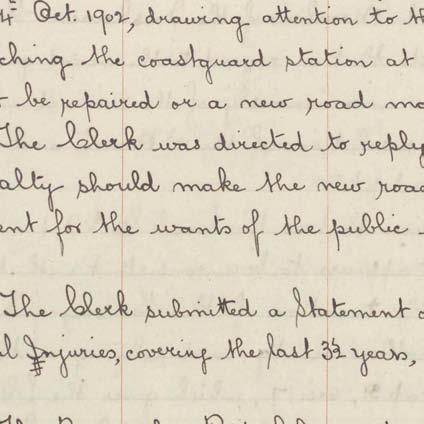 4th Oct. 1902, drawing attention to th
ching the coastguard station at
be repaired or a new road ma
The Clerk was directed to reply
alty should make the new road
ent for the wants of the public
The Clerk submitted a Statement o
l Injuries, covering the last 3½ years,